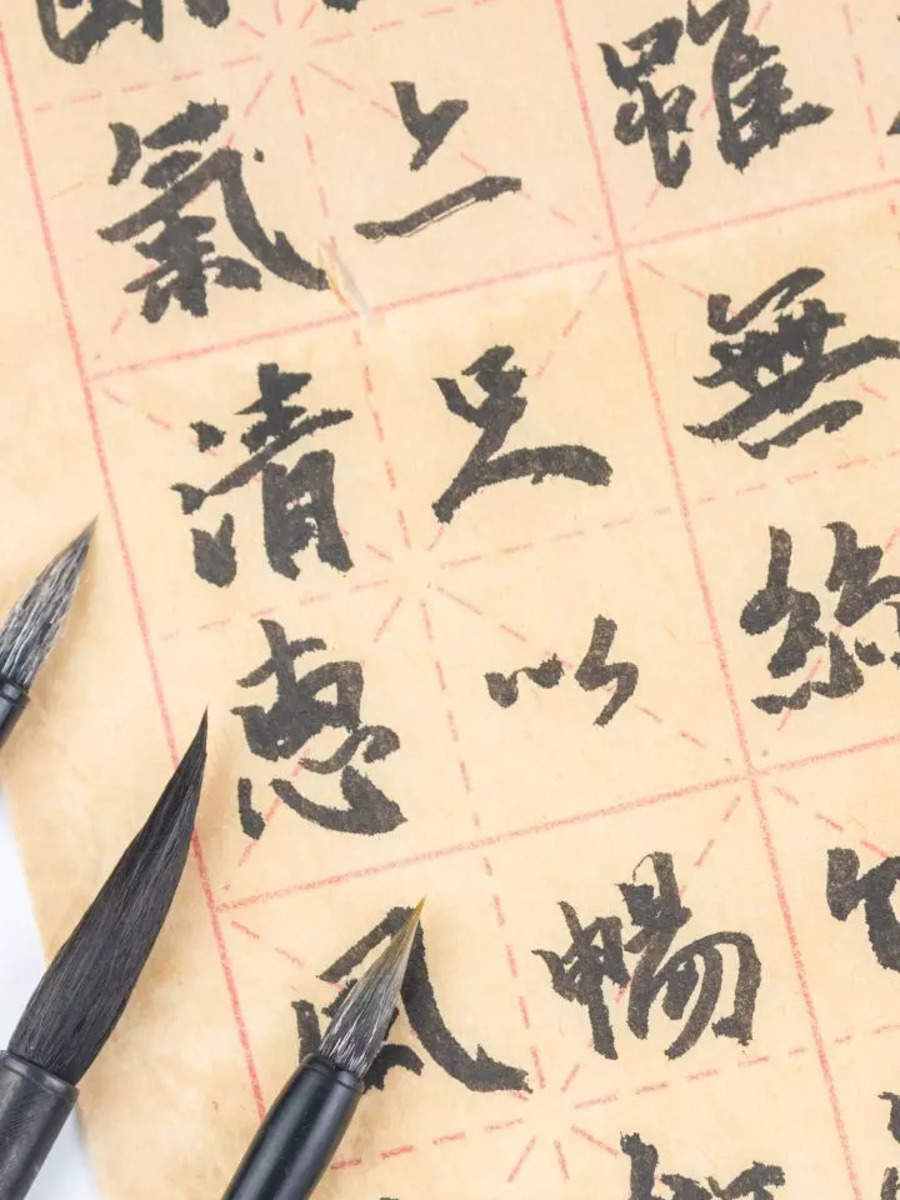 雖無絲竹
上足以暢
氣清惠風